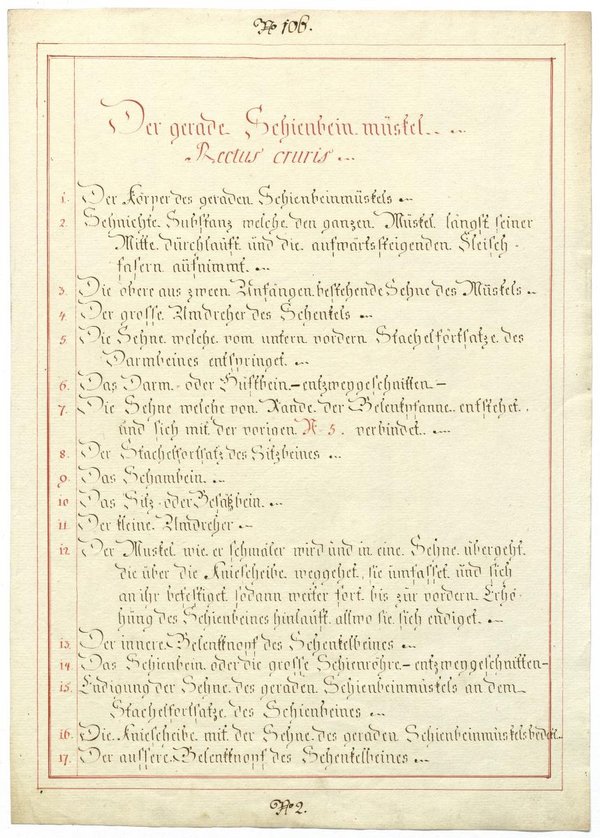 No 106.
Der gerade Schienbein müskel.
Rectus cruris
1. Der Körper des geraden Schienbeinmüskels
2. Sehnichte Substanz welche den ganzen Müskel längst seiner
Mitte dürchlauft und die aufwärtssteigenden Fleisch-
fasern aüfnimmt.
3. Die obere aus zween Anfängen bestehende Sehne des Müskels
4. Der grosse Umdreher des Schenkels
5. Die Sehne welche vom untern vordern Stachelfortsatze des
Darmbeines entspringet.
6. Das Darm- oder Hüftbein – entzweygeschnitten –
7. Die Sehne welche von Rande der Gelenkpfanne entstehet,
und sich mit der vorigen N. 5. verbindet.
8. Der Stachelfortsatz des Sitzbeines
9. Das Schambein.
10. Das Sitz- oder Gesäßbein.
11. Der kleine Umdreher
12. Der Muskel wie er schmäler wird ünd in eine Sehne übergeht
die über die Kniescheibe weggehet, sie umfasset und sich
an ihr befestiget sodann weiter fort bis zür vordern Erhö-
hung des Schienbeines hinlauft allwo sie sich endiget.
13. Der innere Gelenkknopf des Schenkelbeines
14. Das Schienbein oder die grosse Schienröhre – entzweygeschnitten –
15. Endigung der Sehne des geraden Schienbeinmüskels an dem
Stachelfortsatze des Schienbeines
16. Die Kniescheibe mit der Sehne des geraden Schienbeinmüskels bedekt
17. Der aussere Gelenkknopf des Schenkelbeines
No 2.